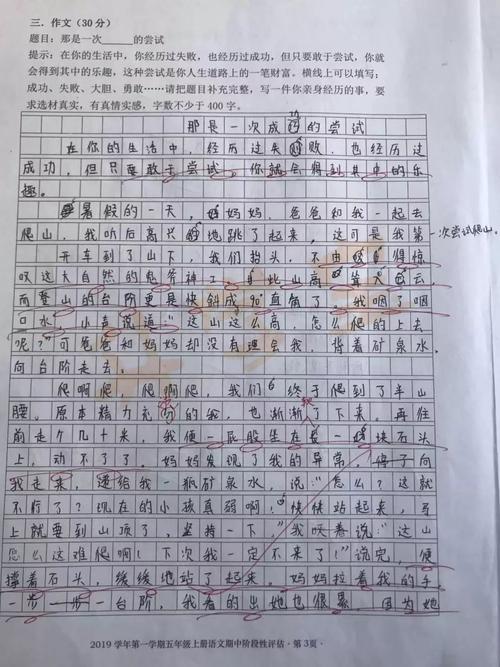 三．作文（30分）
题目：那是一次______的尝试
提示：在你的生活中，你经历过失败，也经历过成功，但只要敢于尝试，你就
会得到其中的乐趣，这种尝试是你人生道路上的一笔财富。横线上可以填写：
成功、失败、大胆、勇敢……请把题目补充完整，写一件你亲身经历的事，要
求选材真实，有真情实感，字数不少于400字。
那是一次成功的尝试
在你的生活中，经历过失败，也经历过
成功，但只要敢于尝试，你就会得到其中的乐
趣。
暑假的一天，妈妈，爸爸和我一起去
爬山，我听后高兴地跳了起来，这可是我第一次尝试爬山。
开车到了山下，我们抬头，不由得惊
叹这大自然的鬼斧神工，此山高耸入云，
而登山的台阶更是快斜成90°直角了，我咽了咽
口水，小声说道："这山这么高，怎么爬的上去
呢？"可爸爸和妈妈却没有理会我，背着矿泉水
向台阶走去。
爬啊爬，爬啊爬，我们终于爬到了半山
腰，原本精力充的我，也渐渐了下来。再往
前走了几十米，我便一屁股坐在一块石头
上，动不了了。妈妈发现了我的异常，向
我走来，递给我一瓶矿泉水，说："怎么？这就
不行了？现在的小孩真弱啊！快快站起来，马
上就要到山顶了，坚持一下"我说："这山
怎么这难爬啊！下次我一定不来了！"说完，便
撑着石头，缓缓地站了起来。妈妈拉着我的手
一步一步一台阶，我看的出她也很累，因为她
2019学年第一学期五年级上册语文期中阶段性评估·第3页·